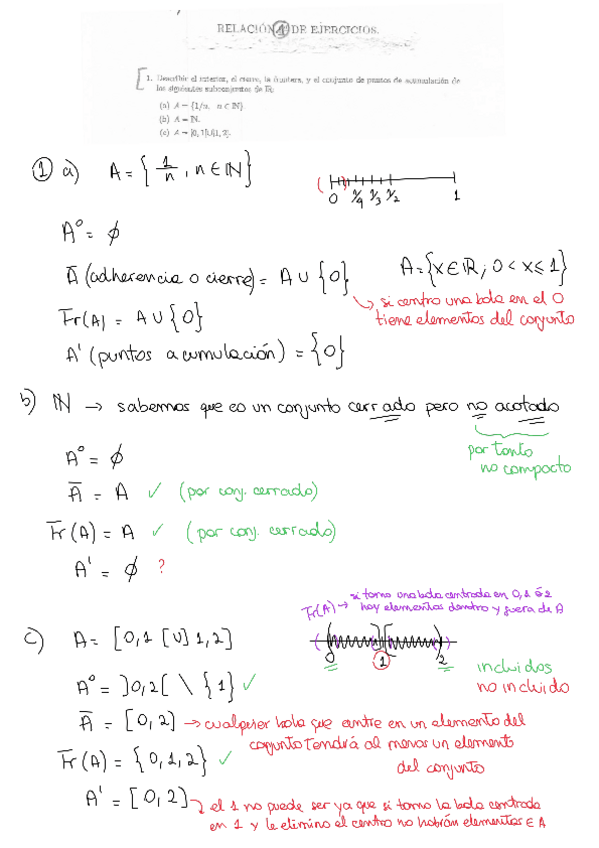 RELACIÓN 1 DE EJERCICIOS.
1. Describir el interior, el cierre, la frontera, y el conjunto de puntos de acumulación de
los siguientes subconjuntos de ℝ:
(a) A = {1/n, n ∈ ℕ}
(b) A = ℕ.
(c) A = [0,1[∪]1,2].
① a) A = { 1/n , n ∈ ℕ }
0 1/4 1/3 1/2 1
A° = ∅
Ā (adherencia o cierre) = A ∪ {0}
A = {x ∈ ℝ ; 0 < x ≤ 1}
↳ si centro una bola en el 0
tiene elementos del conjunto
Fr(A) = A ∪ {0}
A' (puntos acumulación) = {0}
b) ℕ → sabemos que es un conjunto cerrado pero no acotado
por tanto
no compacto
A° = ∅
Ā = A ✓ (por conj. cerrado)
Fr(A) = A ✓ (por conj. cerrado)
A' = ∅ ?
Fr(A) → si tomo una bola centrada en 0, 1 ó 2
hay elementos dentro y fuera de A
c) A = [0,1[∪]1,2]
0 1 2
incluidos
no incluido
A° = ]0,2[ \ {1} ✓
Ā = [0,2] → cualquier bola que centre en un elemento del
conjunto tendrá al menos un elemento
del conjunto
Fr(A) = {0,1,2} ✓
A' = [0,2] → el 1 no puede ser ya que si tomo la bola centrada
en 1 y le elimino el centro no habrán elementos ∈ A